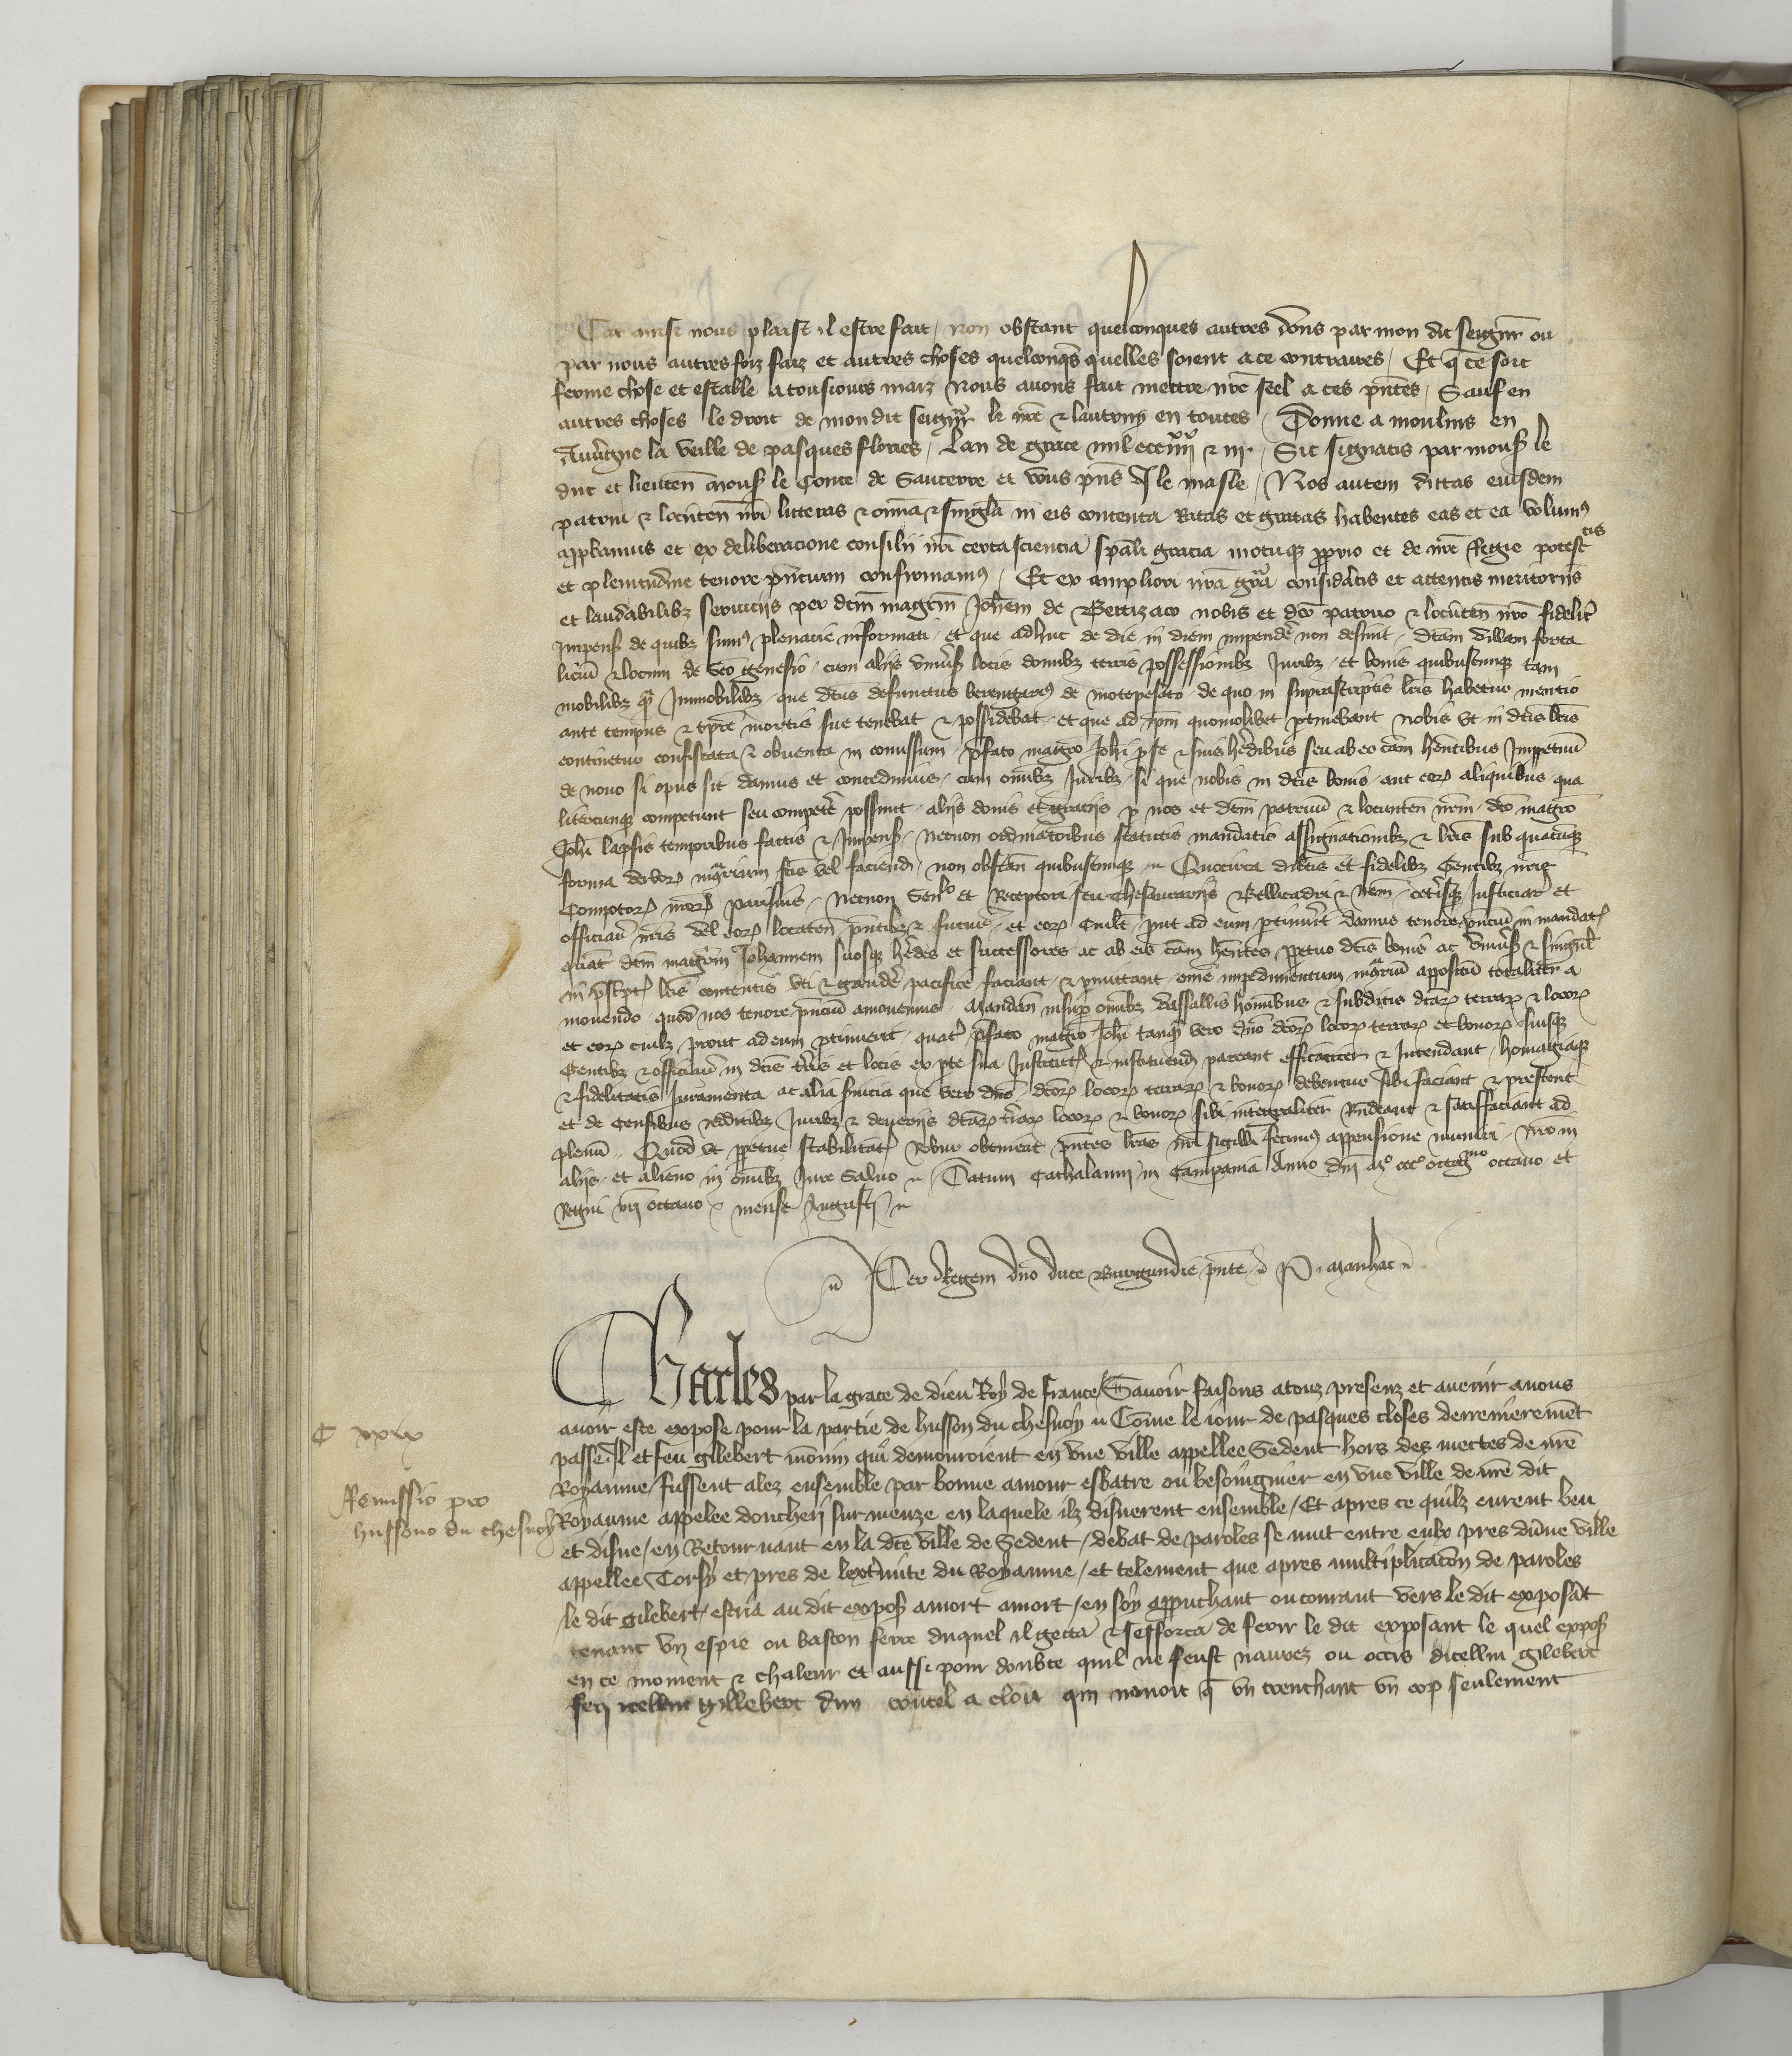 Car ainsi nous plaist il estre fait, non obstant quelconques autres dons par mon dit seignr ou
par nous autresfoiz faiz et autres choses quelconqs quelles soient a ce contraires, Et q ce soit
ferme chose et estable a tousiours maiz nous avons fait mettre nre seel a ces pntes, Sauf en
autres choses le droit de mondit seignr le nre & lautruy en toutes, Donne a moulins en
Auvgne la veille de pasques flories, Lan de grace mil ccc iiii xx & iii. Sic signatis par mons le
duc et lieuten mons le Conte de Sancerre et vous pns J le masle, Nos autem dictas eiusdem
patrui & locuten nri litteras & omia & singla in eis contenta Ratas et gratas habentes eas et ea volums
appbamus et ex deliberacione consilii nri certa sciencia spali gracia motuq pprio et de nre Regie potestatis
et plenitudine tenore pncium confirmams, Et ex ampliori nra gra considatis et attentis meritoriis
et laudabilibz serviciis per dcm magrm Johem de Bettizaco nobis et dco patruo & locuten nro fidelit
impens de quibz sums plenarie informati, et que adhuc de die in diem impende non desinit, dcam villam forta
licium & locum de Sco genesio, cum aliis univs locis domibz terris possessionibz Juribz, et bonis quibuscunq tam
mobilibz q Immobilibz, que dcus defunctus berengarius de motepesato de quo in suprascriptis lris habetur mentio
ante tempus & tpre mortis sue tenebat & possidebat, et que ad ipm quomolibet ptinebant nobis ut in dcis lris
continetur confiscata & obventa in comissum, pfato magro Johi p se & suis hedibus seu ab eo cam hentibus Imppetuu
de novo si opus sit damus et concedimus, cum omibz Juribz, si que nobis in dcis bonis aut eor aliquibus qua
litercunq competunt seu compete possunt, aliis donis et graciis p nos et dcm patruu & locunten nrm, dco magro
Johi lapsis temporibus factis & Impens, necnon ordinacoibus statutis mandatis assignationibz & lris sub quacuq
forma verbor in contrarium fcis vel faciend, non obstan quibuscunq Quocirca dilcis et fidelibz Gentibz nris
Compotor nror parisius, necnon Senllo et Receptori seu thesaurariis Bellicadri & Nem, cetisq Justiciar et
officiar nris vel eor locaten pntibz & futur, et eor cuilt put ad eum ptinuit damus tenore pnciu in mandat
quat dcm magrm Johannem suosq hedes et successores ac ab eis cam hentes ppetuo dcis bonis ac univs & singul
in pscpt lris contentis uti & gaude pacifice faciant & pmittant, ome impedimentum in contrariu appositu totalitr a
movendo quod nos tenore pnciu amovemus, Mandan insup omibz vassallis homibus & subditis dcar terrar & locor
et eor cuilz prout ad eum ptinuerit, quat pfato magro Johi tanq vero dno dcor locor terrar et bonor suisq
Gentibz & officiar in dcis tris et locis ex pte sua Institut & instituend pareant efficaciter & Intendant, homagiaq
& fidelitatis Juramenta ac alia svicia que vero dno dcor locor terrar & bonor debentur sibi faciant & prestent
et de Censibus redditibz Juribz & deveriis dcar trar locor & bonor sibi integraliter Rndeant & satisfaciant ad
plenu, Quod ut ppetue stabilitat Robur obtineat pntes lras nri sigilli fecims appensione muniri, nro in
aliis, et alieno in omibz Jure Salvo Datum Cathalanni in Campania Anno dni mo ccco octogmo octavo et
Regni nri octavo, mense Augusti
Per Regem dno duce Burgundie pnte P. Manhac
Charles par la grace de dieu Roy de france Savoir faisons a touz presenz et avenir a nous
avoir este expose pour la partie de husson du chesnoy Come le iour de pasques closes derrenieremet
passe, Il et feu gilebert monin qui demouroient en une ville appellee Sedent hors des mettes de nre
Royaume, fussent alez ensemble par bonne amour esbatre ou besoingnier en une ville de nre dit
C xxix
Remissio pro
hussono du chesnoy
Royaume appelee doncheri sur meuze en laquele ilz disnerent ensemble, Et apres ce quilz eurent beu
et disne, en Retournant en la dce ville de Sedent, debat de paroles se mut entre eulx pres dune ville
appellee Torsy et pres de lextmite du Royaume, et telement que apres multiplicacon de paroles
le dit gilebert, escria au dit expos a mort a mort, en soy appuchant ou courant vers le dit exposat
tenant un espie ou baston ferre duquel il gecta & sefforca de ferir le dit exposant le quel expos
en ce moment & chaleur et aussi pour doubte quil ne feust navrez ou occis dicellui gilebert
feri icellui gillebert dun coutel a clou qui navoit q un trenchant un cop seulement